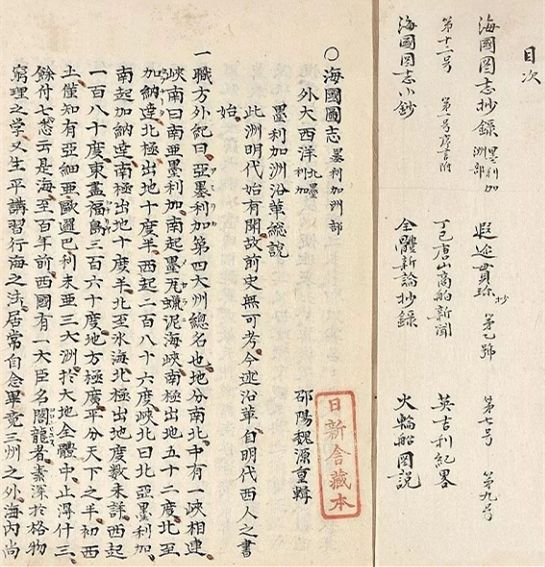 目次
海國圖志抄錄 墨利加洲部 遐迩貫珍抄 第乙號 第七号 第九号
第十二号 第一号 丁巳唐山商船新聞 英吉利紀畧
海國圖志小鈔 全體新論抄錄 火輪船図説
○海國圖志 墨利加洲部
外大西洋 北墨利加 邵陽魏源重輯
墨利加洲沿革總說
此洲明代始有開故前史無可考今述沿革自明代西人之書
始
一職方外紀曰亞墨利加第四大洲總名也地分南北中有一峽相連
峽南曰南亞墨利加南起墨瓦蠟泥海峽南極出地五十二度北至
加納達北極出地十度半西起二百八十六度峽北曰北亞墨利加
南起加納達南極出地十度半北至氷海北極出地度數未詳西起
一百八十度東盡福島三百六十度地方極廣平分天下之半初西
土僅知有亞細亞歐邏巴利未亞三大洲於大地全體中止得什三
餘什七悉云是海至百年前西國有一大臣名閣龍者素深於格物
窮理之学又生平講習行海之法居常自念畢竟三州之外海內尚
日新舎藏本